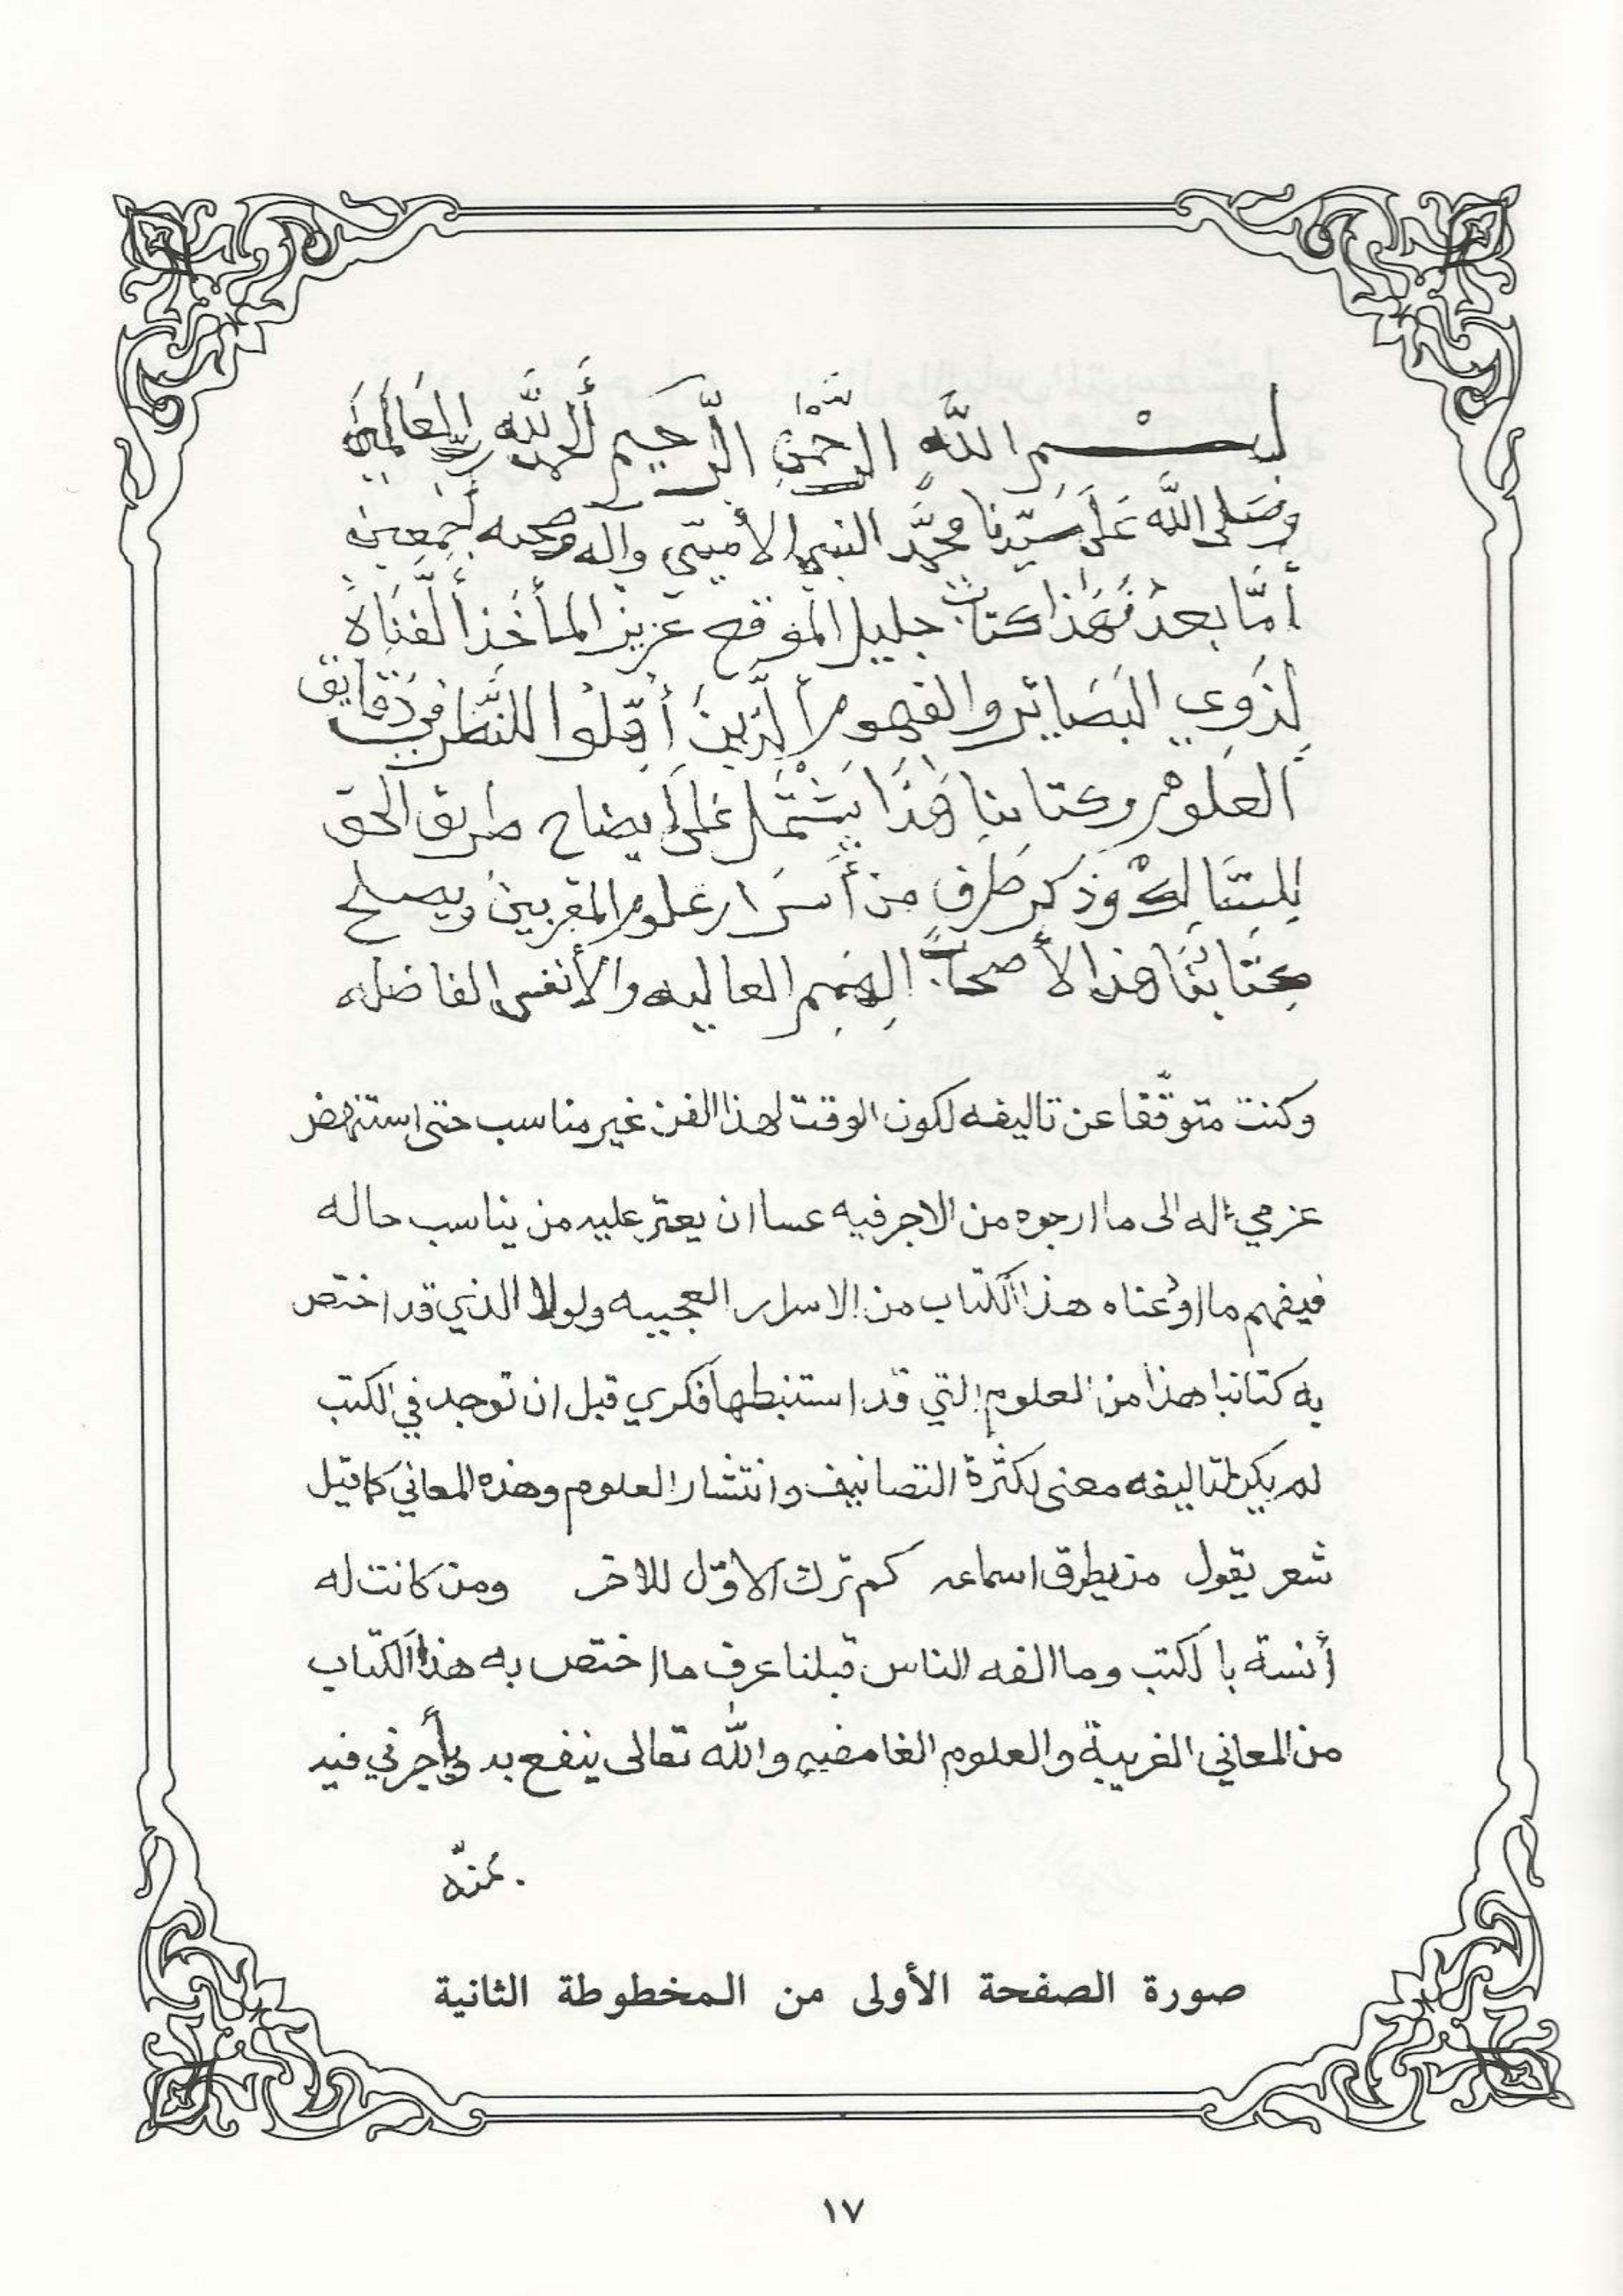 بسم اللَّه الرَّحْمٰنِ الرَّحيم أَلحمد لِلَّهِ ربّ العَالَمِينَ
وَصَلى اللَّه عَلى سَيّدنا محمَّد النبي الأميّ وآله وصحبه أجمعين
أمَّا بعدُ فَهَذا كتابٌ جليل الموقع عزيز المأخَذ أَلَّفنَاهُ
لِذَوِي البَصَائر والفهوم أَلَّذِينَ أُهِّلُوا للنَّظر في دَقايق
العلوم وكتابنا هَذَا يَشْتَمل عَلى أيضاح طريق الحق
لِلسَّالِك وَذكر طَرف من أَسرَار علوم المقربين ويصلح
كِتَابُنَا هذا لأصحابِ الهِمِم العاليه والأنفس الفاضله
وكنت متوقّفا عن تاليفه لكون الوقت لهذا الفن غير مناسب حتى استنهض
عزمي له الى ما ارجوه من الاجر فيه عسا ان يعتر عليه من يناسب حاله
فيفهم ما اودعناه هذا الكتاب من الاسرار العجيبه ولولا الذي قد اختص
به كتابنا هذا من العلوم التي قد استنبطها فكري قبل ان توجد في الكتب
لم يكن لتاليفه معنى لكثرة التصانيف وانتشار العلوم وهذه المعاني كما قيل
شعر يقول من يطرق اسماعه كم ترك الاوّل للاخر ومن كانت له
أنسة بالكتب وما الفه الناس قبلنا عرف ما اختص به هذا الكتاب
من المعاني الغريبة والعلوم الغامضيه واللّه تعالى ينفع به ويأجرني فيه
بمنّه
صورة الصفحة الأولى من المخطوطة الثانية
١٧